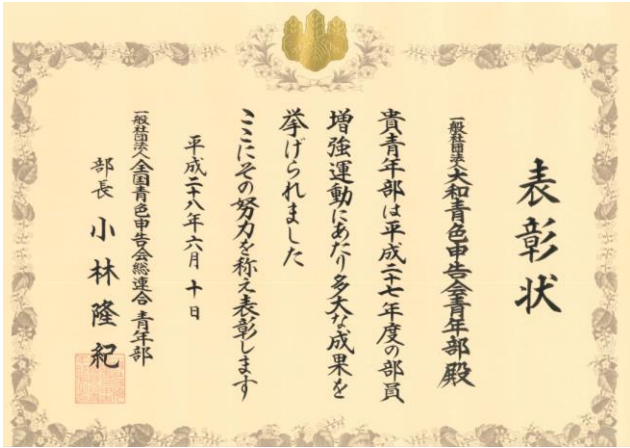 表彰状
一般社団法人大和青色申告会青年部殿
貴青年部は平成二十七年度の部員
増強運動にあたり多大な成果を
挙げられました
ここにその努力を称え表彰します
平成二十八年六月十日
一般社団法人全国青色申告会総連合 青年部
部長 小林隆紀